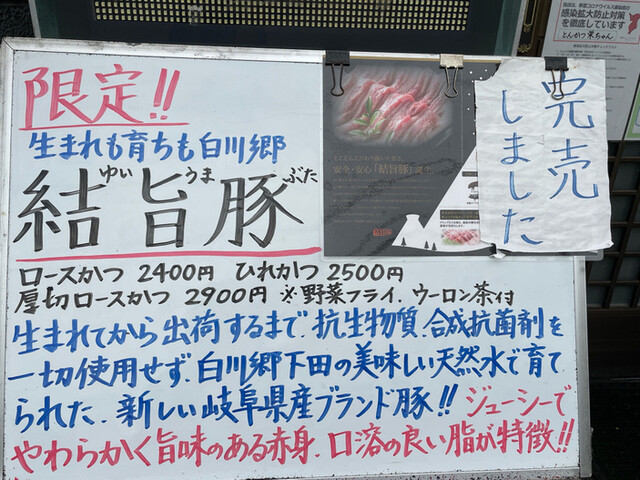 限定!!
生まれも育ちも白川郷
ゆい うま ぶた
結旨豚
ロースかつ 2400円 ひれかつ 2500円
厚切ロースかつ 2900円 ※野菜フライ．ウーロン茶付
生まれてから出荷するまで．抗生物質．合成抗菌剤を
一切使用せず．白川郷下田の美味しい天然水で育て
られた．新しい岐阜県産ブランド豚!! ジューシーで
やわらかく旨味のある赤身．口溶の良い脂が特徴!!
安全・安心「結旨豚」誕生
完売
しました
感染拡大防止対策
を徹底しています
とんかつ 東ちゃん